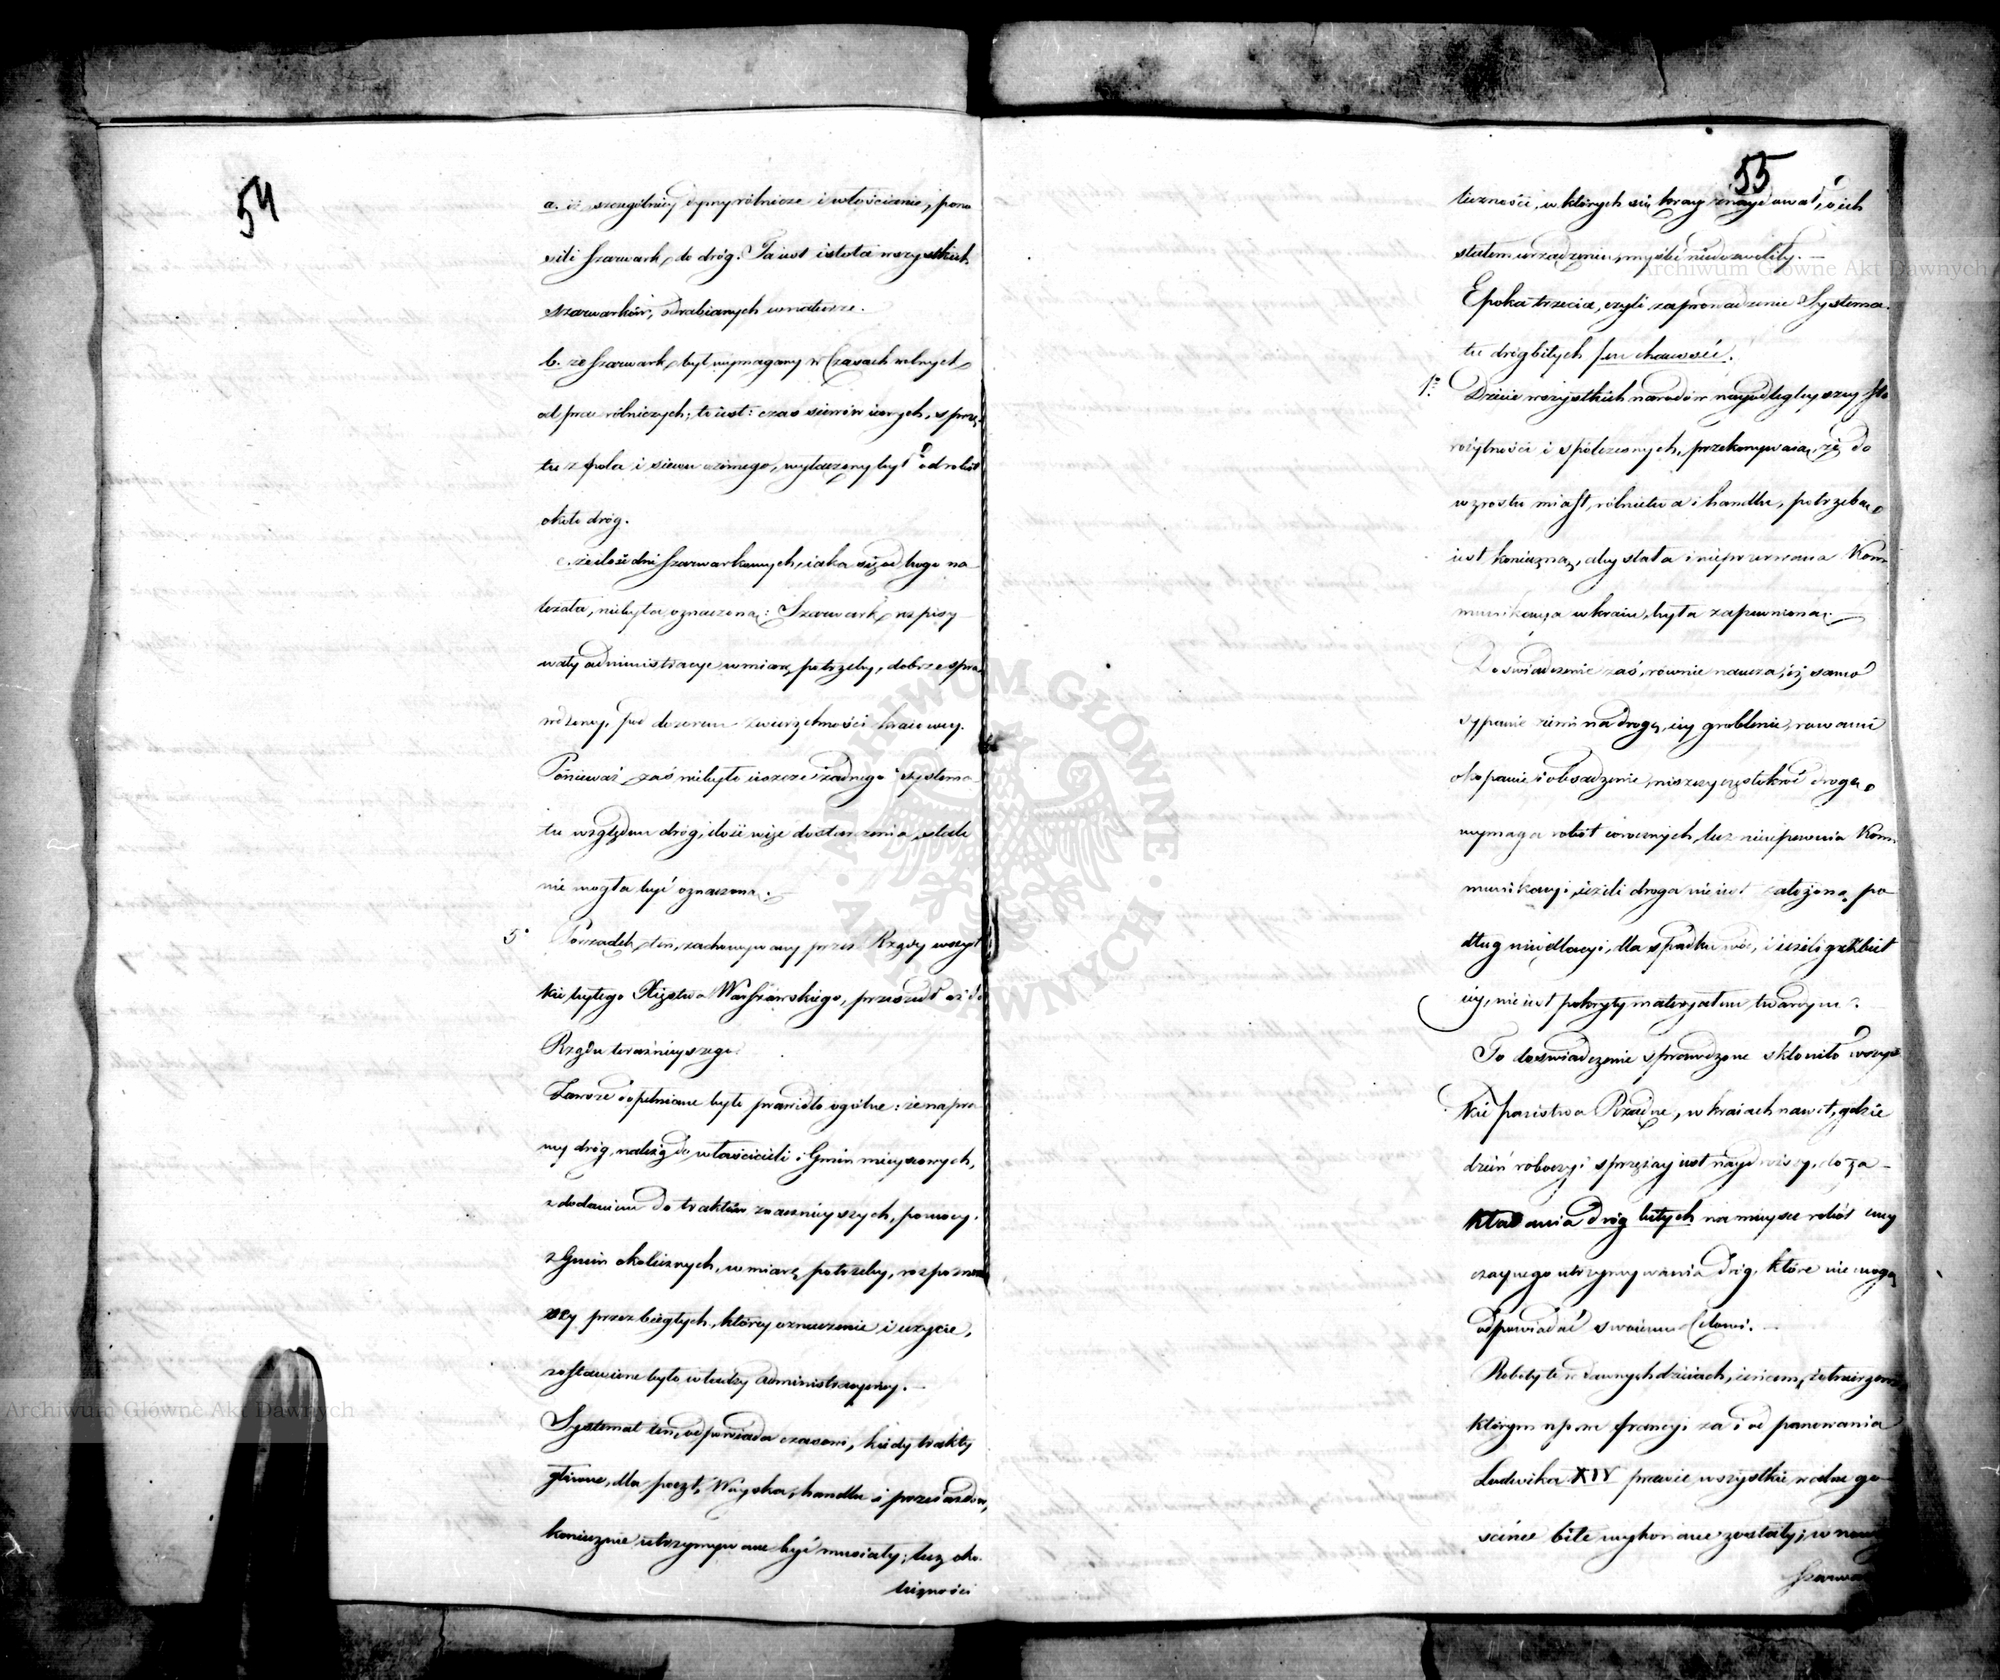 54
a. iż szczególniey dymy rólnicze i włościanie, pono
sili szarwark do dróg. Ta iest istota wszystkich
szarwarków, odrabianych w naturze.
b. że szarwark był wymagany w Czasach wolnych
od prac rólniczych; to iest: czas siewów iarych, sprzę
tu z pola i siewu ozimego, wyłączony był od robót
około dróg.
c. że ilość dni szarwarkowych, iaka się od kogo na
leżała, niebyła oznaczona: Szarwark przepisy
wały administracye w miarę potrzeby, dobrze spra
wdzoney, pod dozorem zwierzchności kraiowey.
Ponieważ zaś niebyło ieszcze żadnego systema
tu względem dróg, ilość więc dostarczenia, stale
nie mogła być oznaczona.
5° Porządek ten, zachowywany przez Rządy wszyst
kie byłego Xięstwa Warszawskiego, przeszedł aż do
Rządu teraźnieyszego.
Zawsze dopełniane było prawidło ogólne: że napra
wy dróg, należą do właścicieli i Gmin mieyscowych,
z dodaniem do traktów znacznieyszych, pomocy
z Gmin okolicznych, w miarę potrzeby, rozpozna
ney przez biegłych, którey oznaczenie i użycie,
zostawione było władzy administracyjney.
Systemat ten, odpowiada czasowi, kiedy trakty
główne, dla poczt, Woyska, handlu i przeiazdów,
koniecznie utrzymywane być musiały; lecz oko
liczności
55
liczności, w których się kray znaydował, o ich
stałem urządzeniu, myśleć niedozwoliły.
Epoka trzecia, czyli zaprowadzenie Systema
tu dróg bitych
1° Dzieie wszystkich narodów nayodlegleyszey sta
rożytności i spólczesnych, przekonywaią, że do
wzrostu miast, rólnictwa i handlu, potrzebą
iest konieczną, aby stała i nieprzerwana Kom
munikacya w kraiu, była zapewniona.
Doświadczenie zaś, równie naucza, iż samo
sypanie ziemi na drogę, iey groblenie, rowami
okopanie i obsadzenie, niszczy częstokroć drogę,
wymaga robót corocznych, lecz nieupewnia Kom
munikacyi, ieżeli droga nie iest założona po
dług niwellacyi, dla spadku wód, i ieżeli grzbiet
iey, nie iest pokryty materyałem twardym.
To doświadczenie sprawdzone skłoniło wszyst
kie państwa Rządne, w kraiach nawet, gdzie
dzień roboczy i sprzężay iest naydroższy, do za
kładania dróg bitych na mieysce robót zwy
czaynego utrzymywania dróg, które nie mogą
odpowiadać swoiemu Celowi.
Roboty te w dawnych dzieiach, ieńcom, żołnierzom
którym np. we francyi za i od panowania
Ludwika XIV prawie wszystkie rodne go
scińce bite wykonane zostały; w nowszych
szarwar
Archiwum Główne Akt Dawnych
Archiwum Główne Akt Dawnych
ARCHIWUM GŁÓWNE · AKT DAWNYCH ·